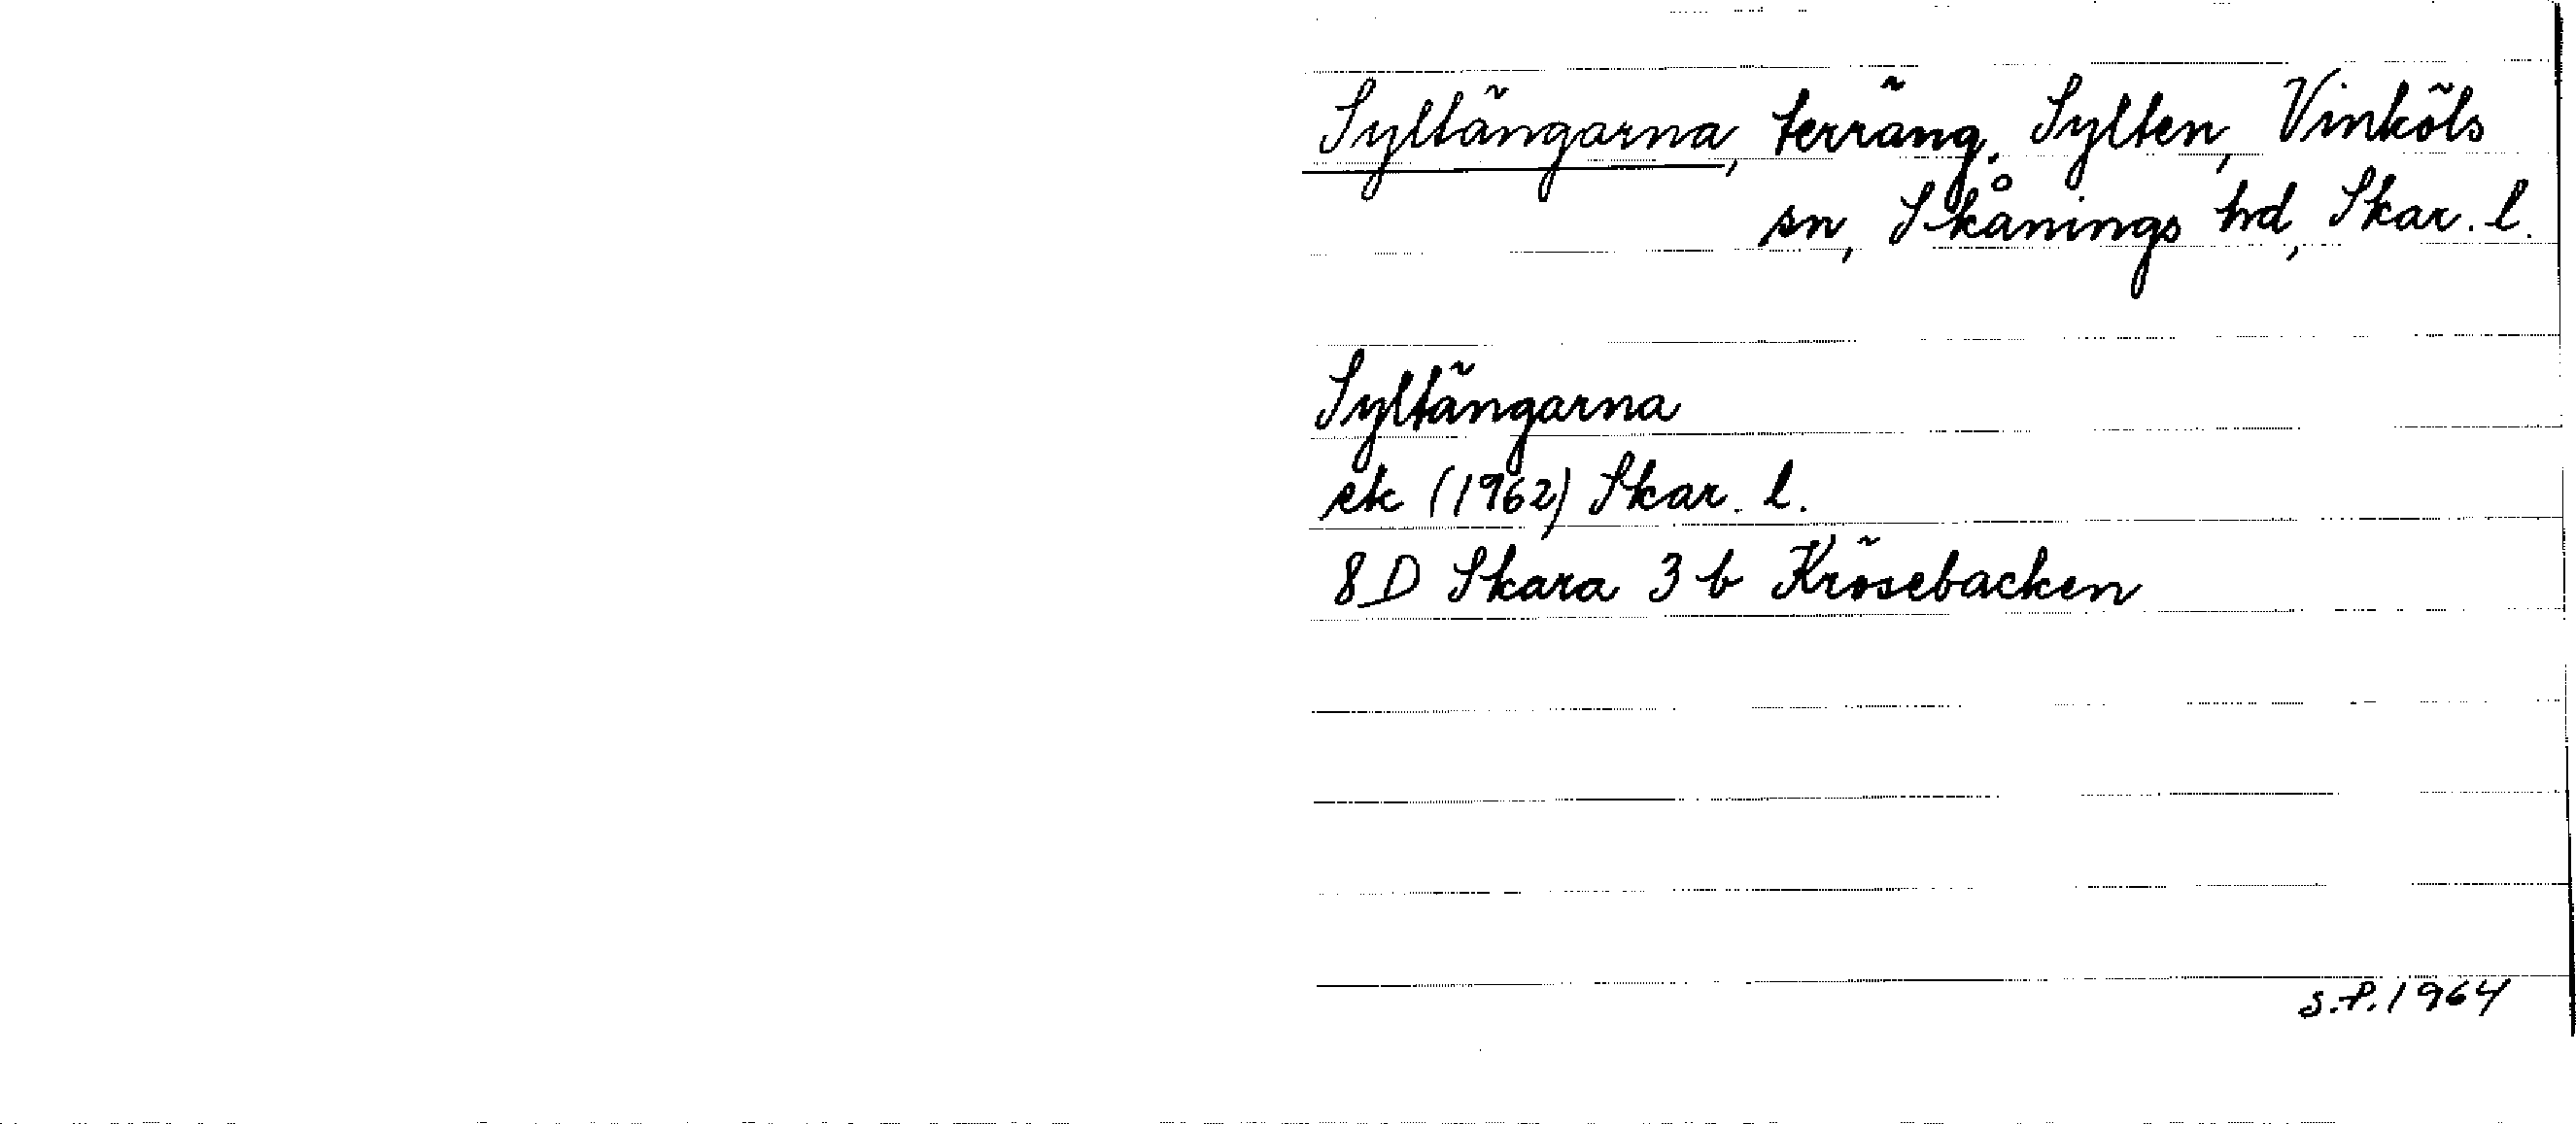 Syltängarna, terräng. Sylten, Vinköls
sn, Skånings hd, Skar. l.
Syltängarna
ek (1962) Skar. l.
8D Skara 3 b Krösebacken
S.P. 1964